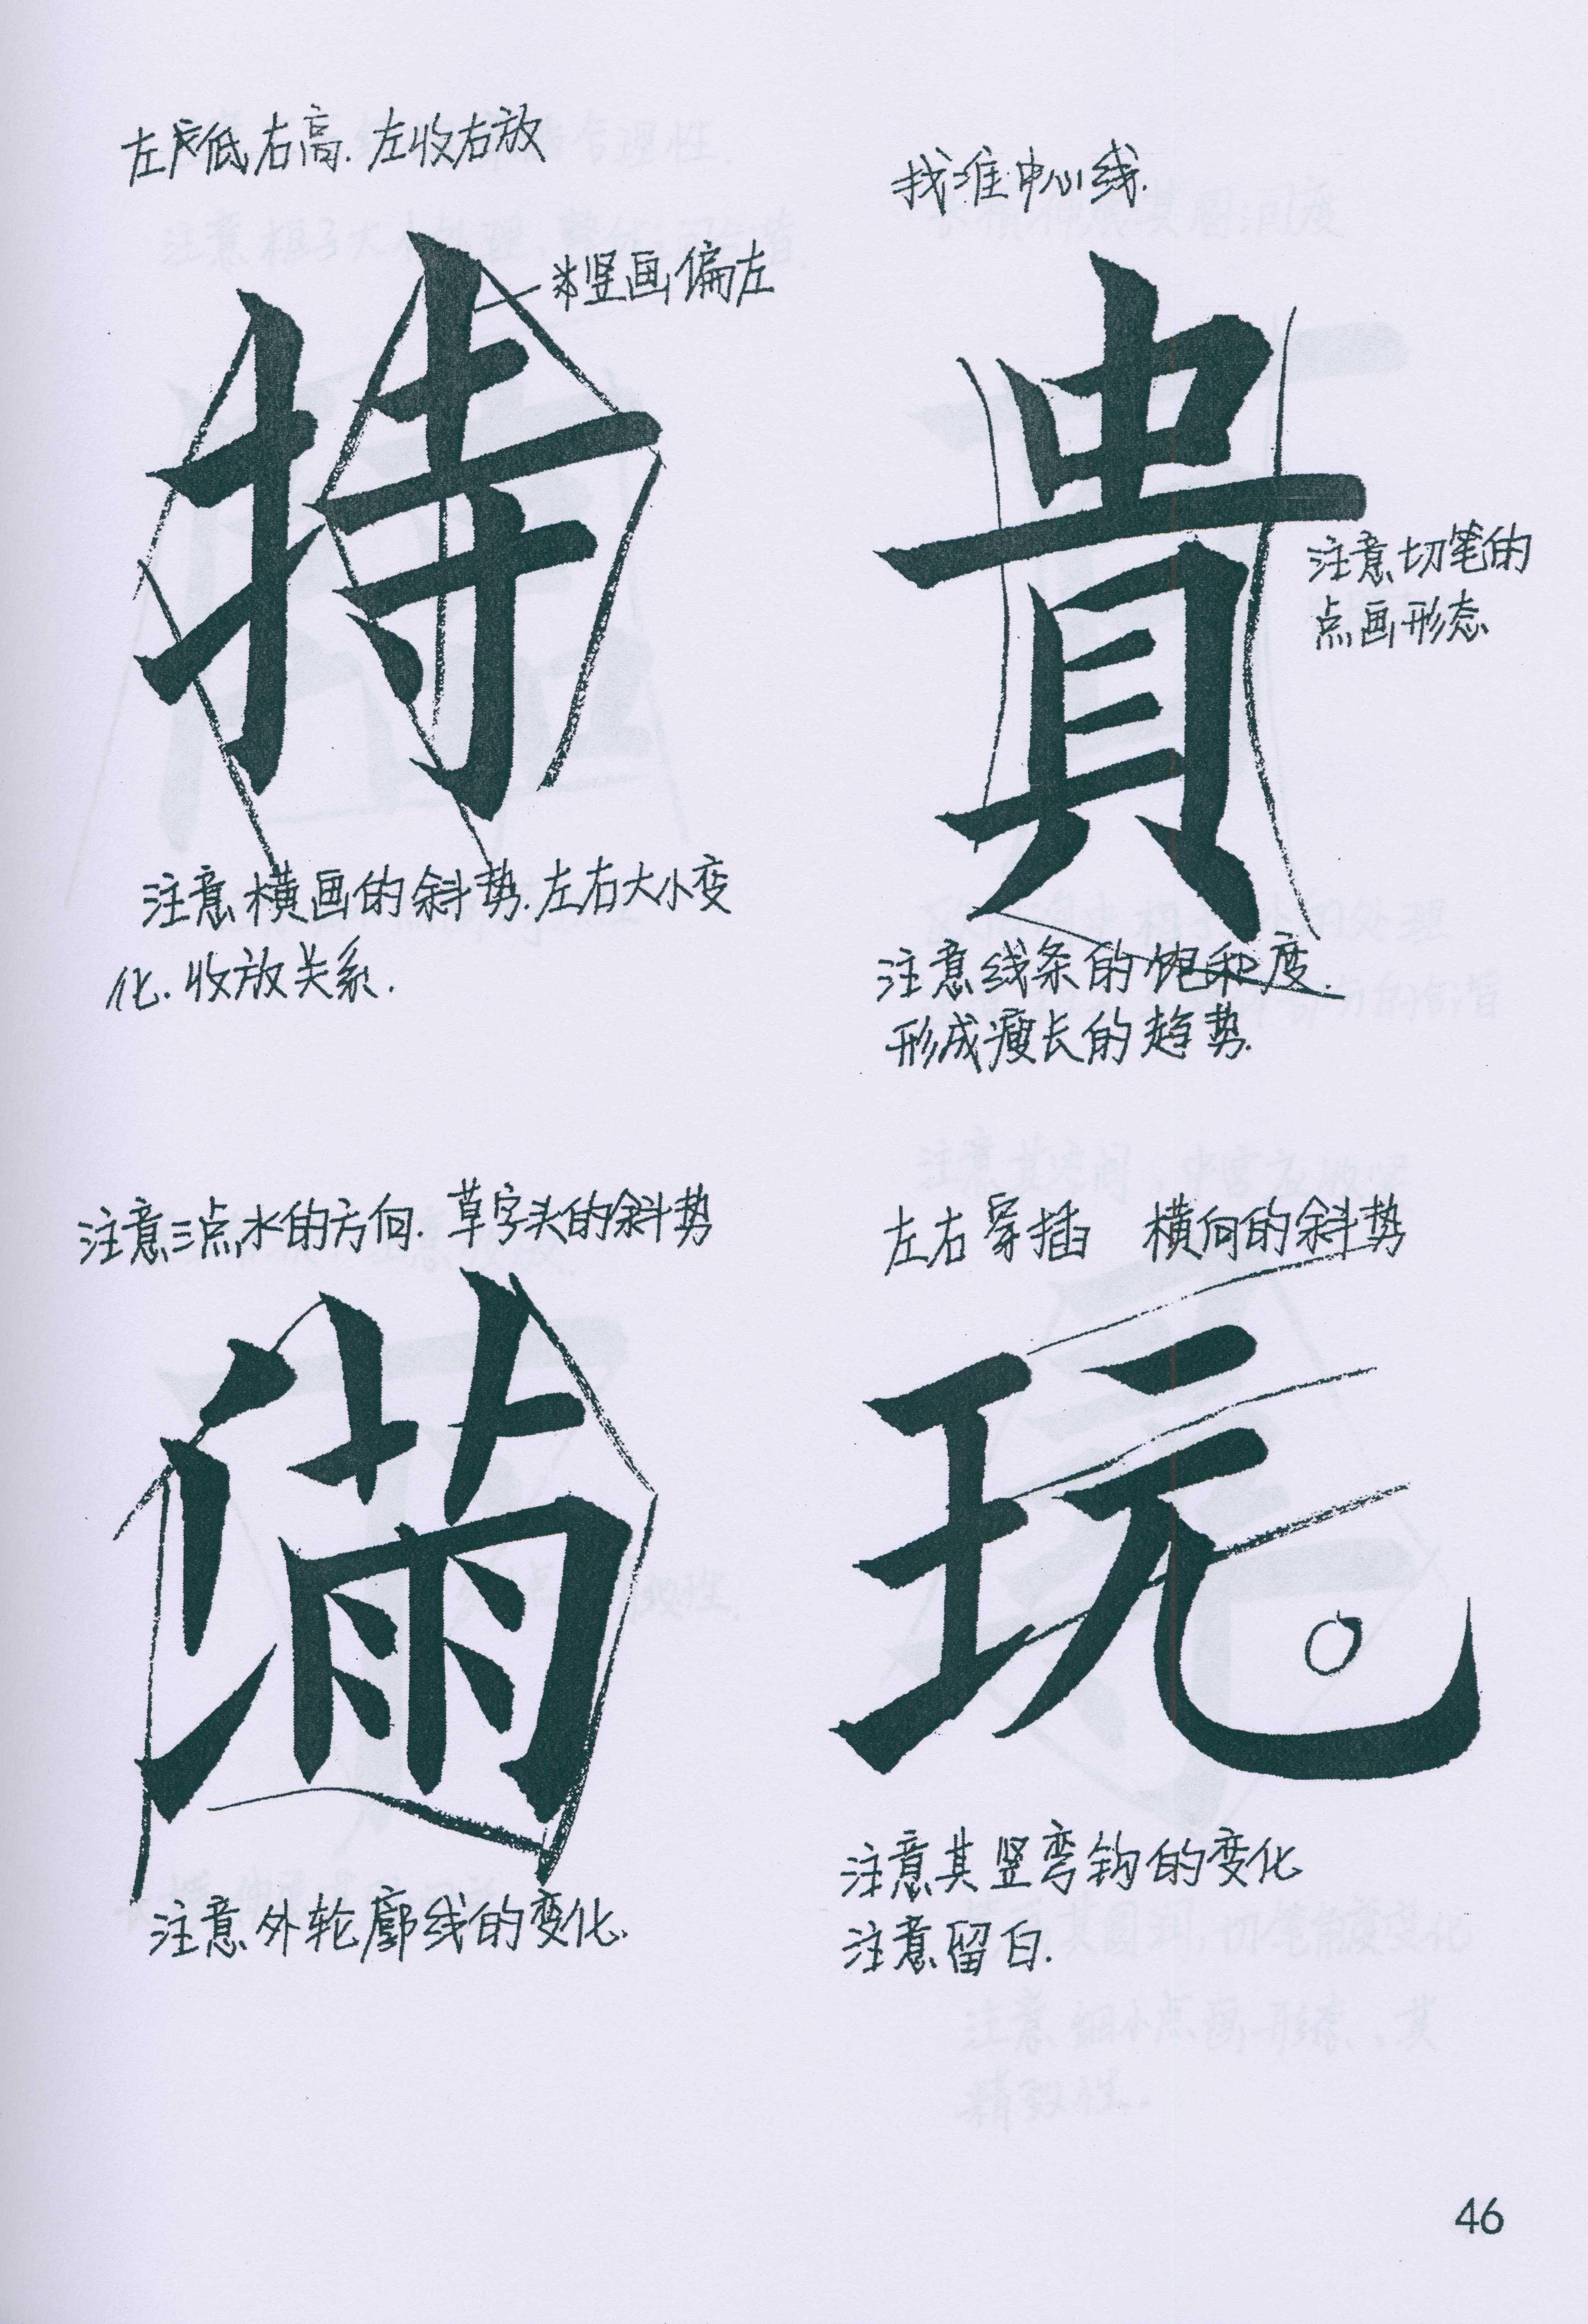 左低右高.左收右放
竖画偏左
持
注意横画的斜势.左右大小变
化.收放关系.
找准中心线.
貴
注意切笔的
点画形态
注意线条的饱和度.
形成瘦长的趋势.
注意三点水的方向.草字头的斜势
滿
注意外轮廓线的变化.
左右穿插 横向的斜势
玩
注意其竖弯钩的变化
注意留白.
46